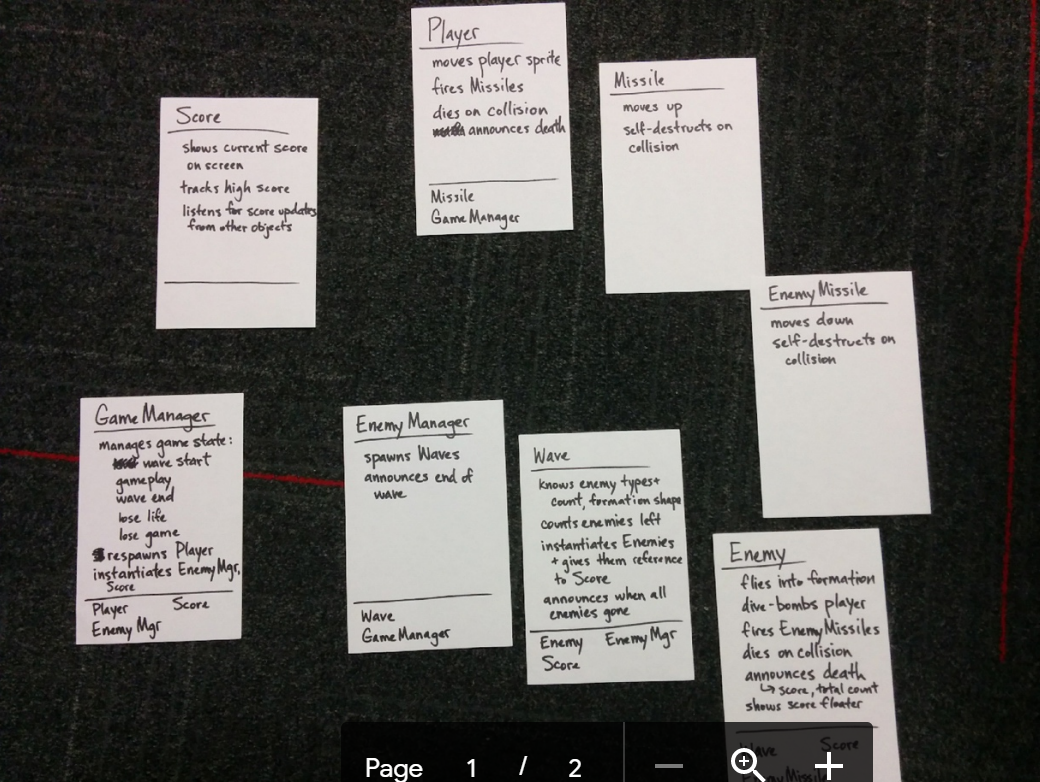 Player
moves player sprite
fires Missiles
dies on collision
announces death
Missile
GameManager
Missile
moves up
self-destructs on
collision
Score
shows current score
on screen
tracks high score
listens for score updates
from other objects
EnemyMissile
moves down
self-destructs on
collision
GameManager
manages game state:
wave start
gameplay
wave end
lose life
lose game
respawns Player
instantiates EnemyMgr,
Score
Player Score
Enemy Mgr
Enemy Manager
spawns Waves
announces end of
wave
Wave
GameManager
Wave
knows enemy types+
count, formation shape
counts enemies left
instantiates Enemies
+ gives them reference
to Score
announces when all
enemies gone
Enemy EnemyMgr
Score
Enemy
flies into formation
dive-bombs player
fires EnemyMissiles
dies on collision
announces death
↳ score, total count
shows score floater
Wave Score
Page 1 / 2